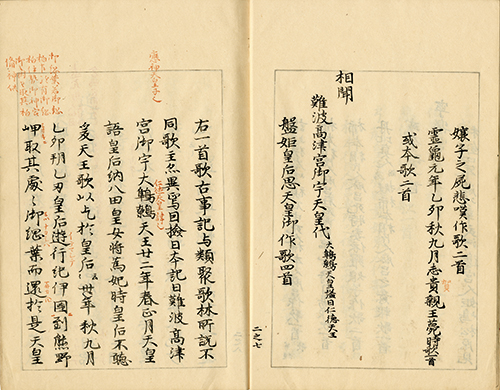 孃子之屍悲嘆作歌二首
霊龜元年乙卯秋九月志貴親王薨時歌一首
或本歌二首
相聞
難波髙津宮御宇天皇代 大鷦鷯天皇謚曰仁德天王
盤姫皇后思天皇御作歌四首
二之七
右一首歌古事記与類聚歌林所説不
同歌主亦異焉因撿日本記曰難波髙津
宮御宇大鷦鷯天王廿二年春正月天皇
語皇后納八田皇女將為妃時皇后不聴
爰天王歌以乞於皇后之卅年秋九月
乙卯朔乙丑皇后遊行紀伊國到熊野
岬取其處之御綱葉而還於是天皇